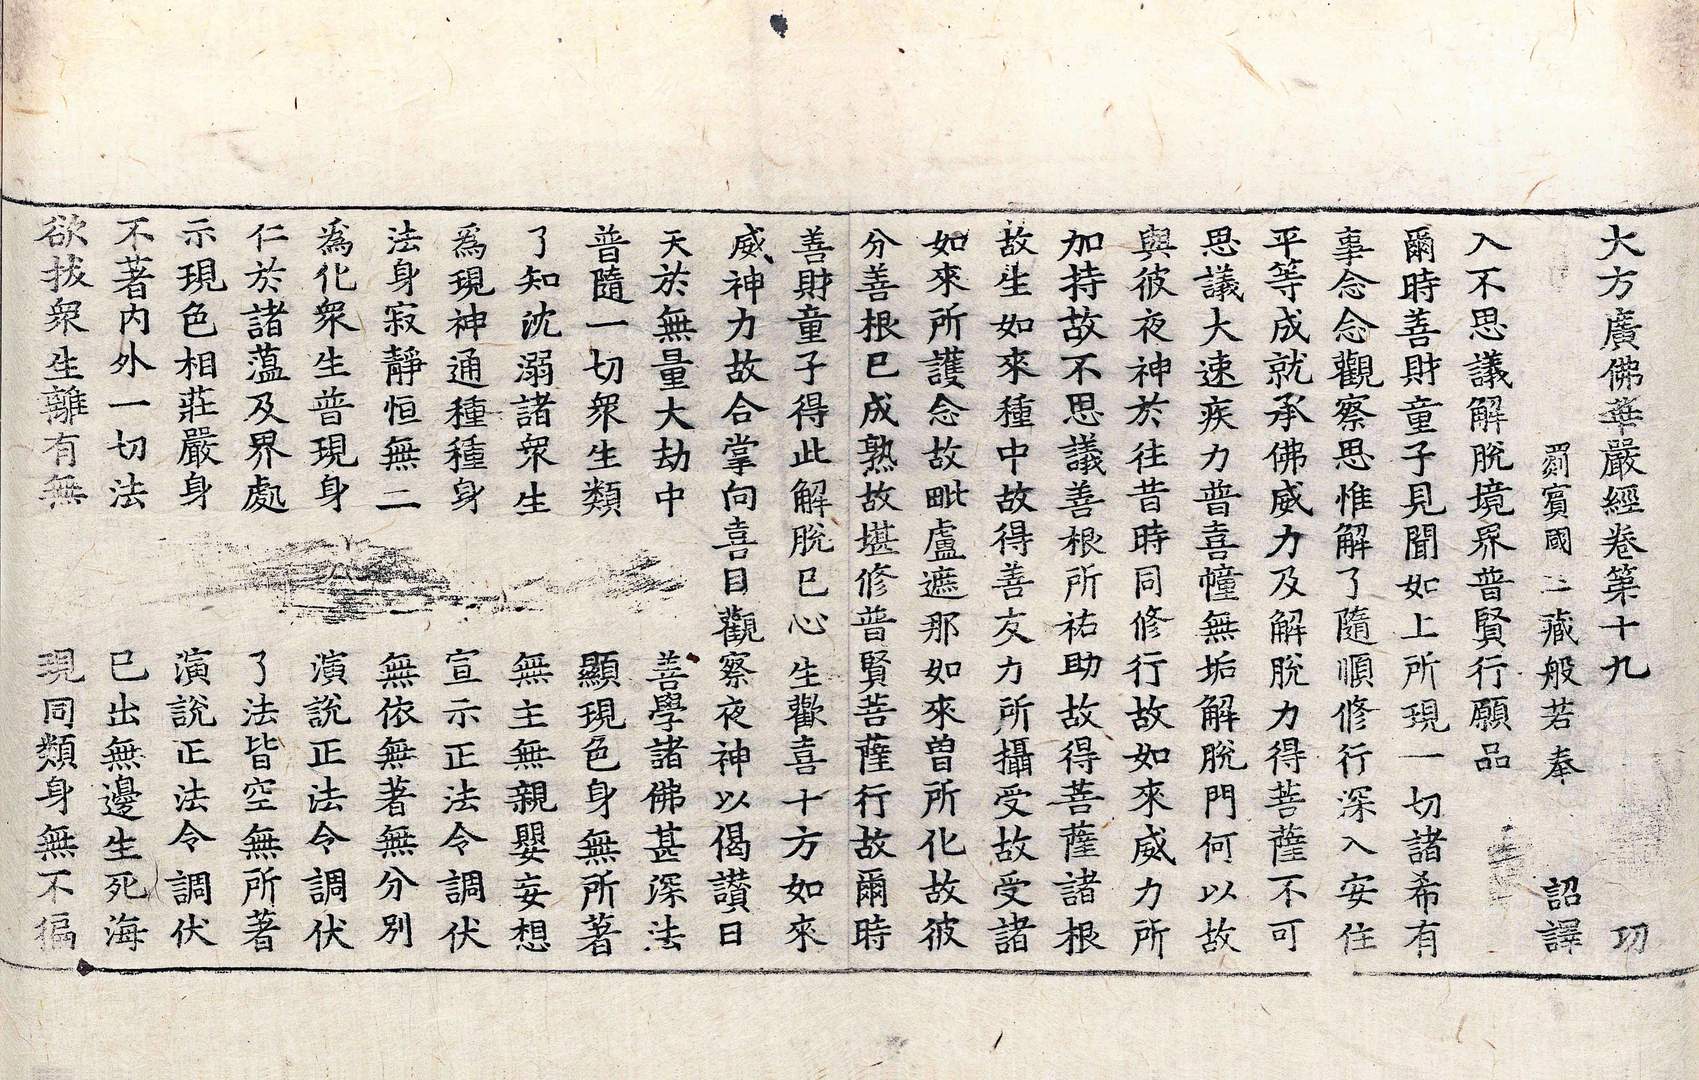 大方廣佛華嚴經卷第十九 㓛
罽賓國三藏般若奉 詔譯
入不思議解脫境界普賢行願品
爾時善財童子見聞如上所現一切諸希有
事念念觀察思惟解了隨順修行深入安住
平等成就承佛威力及解脫力得菩薩不可
思議大速疾力普喜幢無垢解脫門何以故
與彼夜神於往昔時同修行故如來威力所
加持故不思議善根所祐助故得菩薩諸根
故生如來種中故得善友力所攝受故受諸
如來所護念故毗盧遮那如來曾所化故彼
分善根已成熟故堪修普賢菩薩行故爾時
善財童子得此解脫已心生歡喜十方如來
威神力故合掌向喜目觀察夜神以偈讚曰
天於無量大劫中 善學諸佛甚深法
普隨一切衆生類 顯現色身無所著
了知沈溺諸衆生 無主無親嬰妄想
爲現神通種種身 宣示正法令調伏
法身寂靜恒無二 無依無著無分別
爲化衆生普現身 演說正法令調伏
仁於諸薀及界處 了法皆空無所著
示現色相莊嚴身 演說正法令調伏
不著內外一切法 已出無邊生死海
欲拔衆生離有無 現同類身無不徧